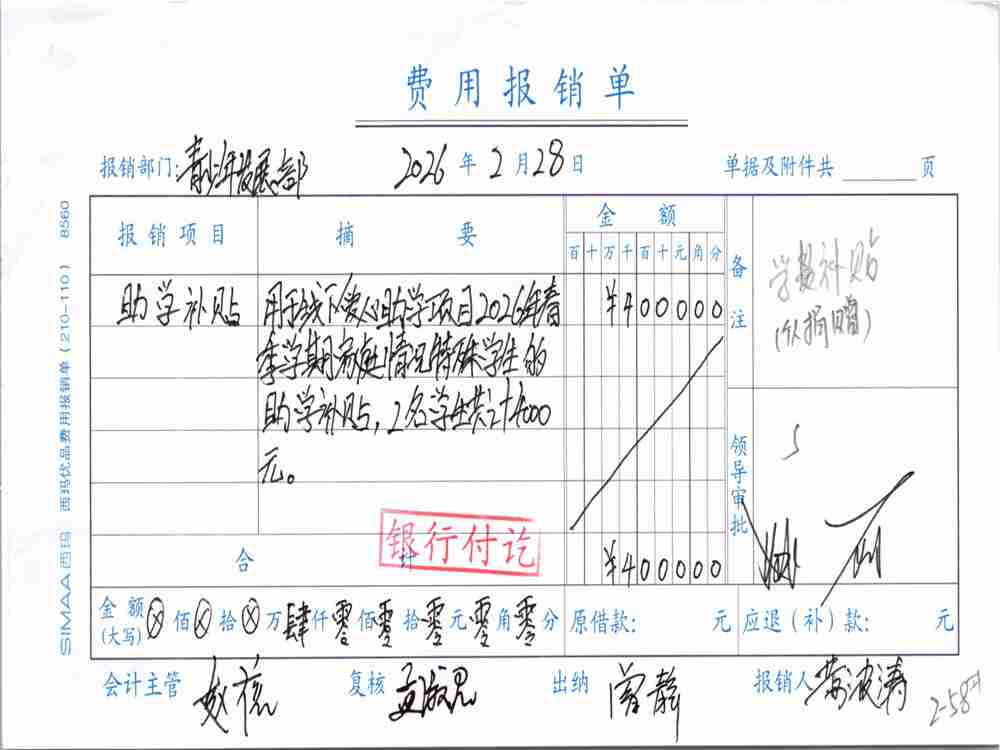 费用报销单
报销部门:青少年发展部 2026年2月28日 单据及附件共 页
SIMAA西玛 西玛优品费用报销单(210-110) 8560
报销项目 摘要 金额 备注
百十万千百十元角分
助学补贴 用于线下爱心助学项目2026年春 ¥400000
季学期家庭情况特殊学生的
助学补贴,2名学生共计4000
元。
学费补贴
(从捐赠)
领导审批
银行付讫
合计 ¥400000
金额(大写) ⊗佰⊗拾⊗万肆仟零佰零拾零元零角零分 原借款: 元 应退(补)款: 元
会计主管 复核 出纳 曾静 报销人 黄波涛
2-58#